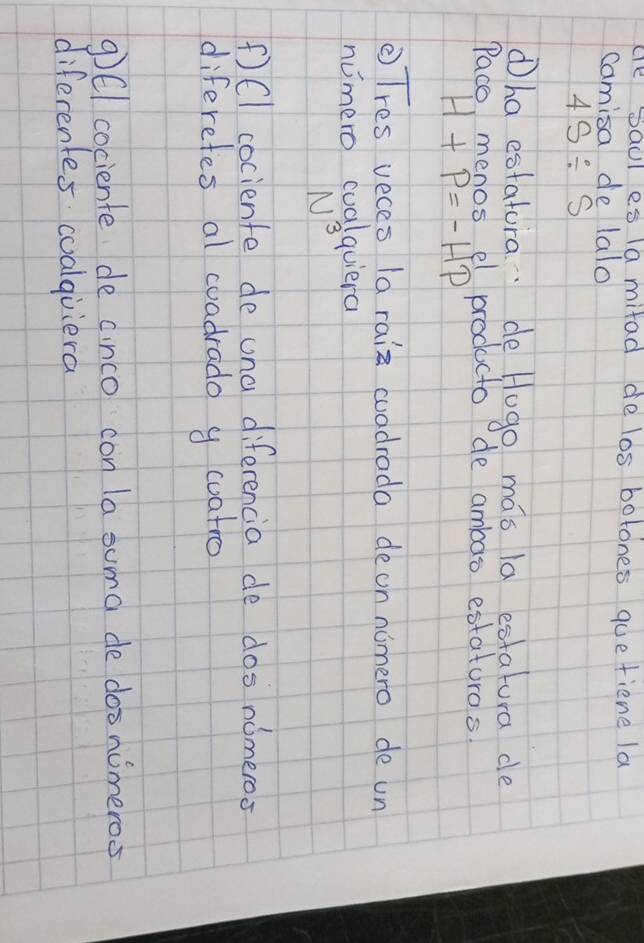 de Saul es la mitad de los botones que tiene la
camisa de lalo
4S ÷ S
d) ha estatura de Hugo más la estatura de
Paco menos el producto de ambas estaturas.
H + P = - HP
e) Tres veces la raíz cuadrada de un número de un
número cualquiera
N³
f) El cociente de una diferencia de dos números
diferetes al cuadrado y cuatro
g) El cociente de cinco con la suma de dos números
diferentes cualquiera